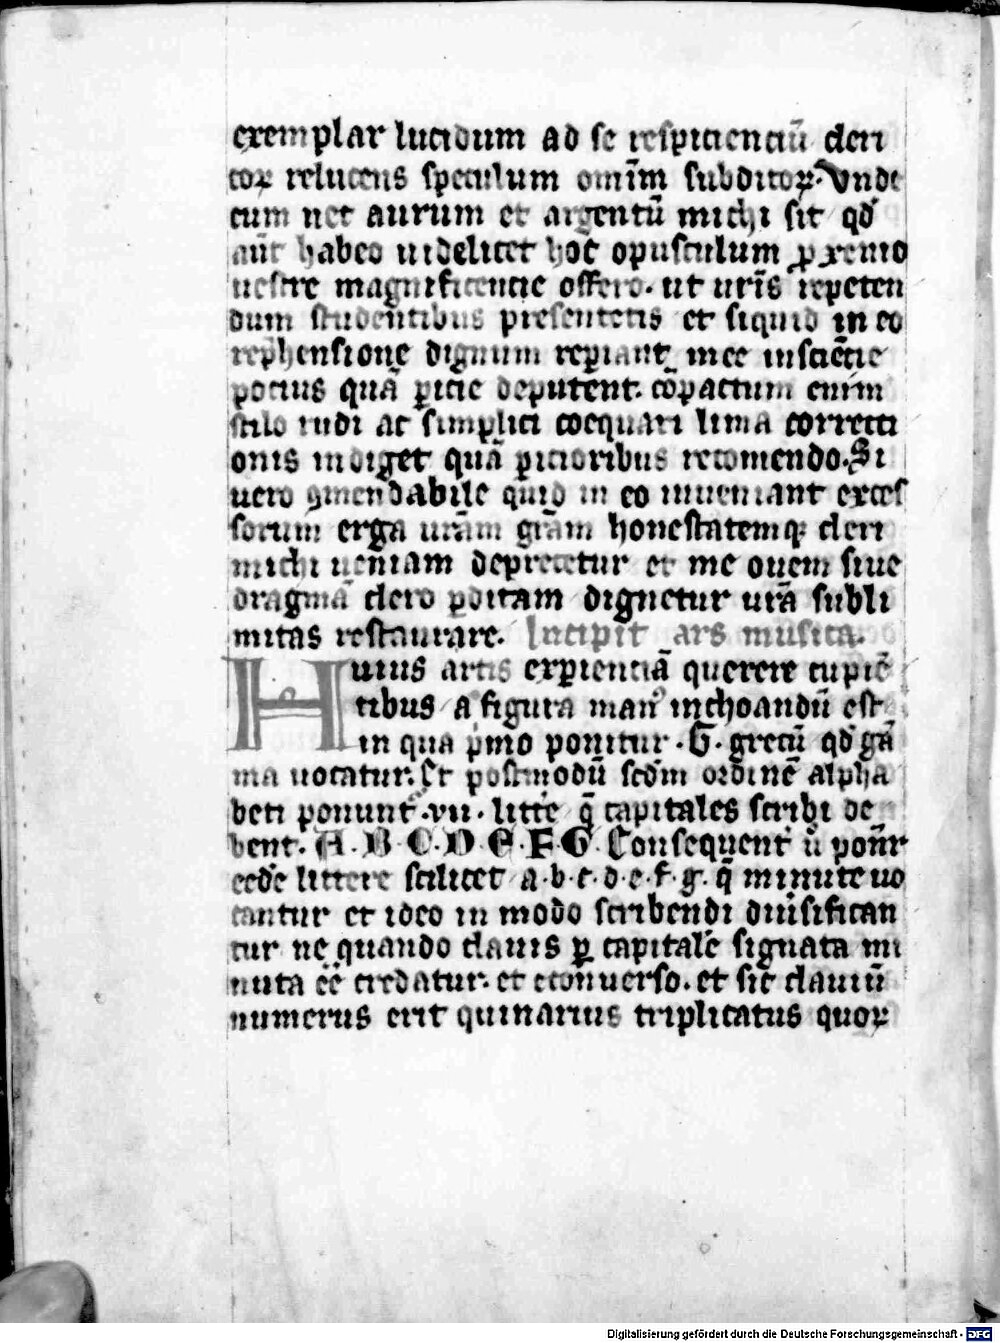 exemplar lucidum ad se respicienciū cleri
coꝝ relucens speculum om̄im subditoꝝ. Vnde
cum nec aurum et argentū michi sit qd̕
aūt habeo uidelicet hoc opusculum ꝓ xenio
uestre magnificencie offero. ut ur̄is repeten
dum studentibus presentetis et siquid in eo
rep̄hensione dignum rep̄iant mee inscīe͞tie
pocius quā ꝑicie deputent. cōpactum enim
stilo rudi ac simplici cocquari lima correcti
onis indiget quā ꝑicioribus recomendo. Si
uero ꝯmendabile quid in eo inueniant exces
sorum erga ur̄am gr̄am honestatemqꝫ cleri
michi ueniam deprecetur et me ouem siue
dragmā clero ꝑditam dignetur ur̄a subli
mitas restaurare. Incipit ars musica.
Huius artis exꝑienciā querere cupiē
tibus a figura manꝰ inchoandū est
in qua p̄mo ponitur. G. grecū qd̕ gā
ma uocatur. Et postmodū scd̄m ordinē alpha
beti ponunt̕ .vii. litt̕e q̄ capitales scribi de
bent. A. B. C. D. E. F. G. Consequent̕ u̕ pon̄r
eed̕e littere scilicet a. b. c. d. e. f. g. q̄ minute uo
cantur et ideo in modo scribendi diuisifican
tur ne quando clauis ꝑ capitalē signata mi
nuta eē credatur. et econuerso. et sic clauiū
numerus erit quinarius triplicatus quoꝝ
Digitalisierung gefördert durch die Deutsche Forschungsgemeinschaft - DFG